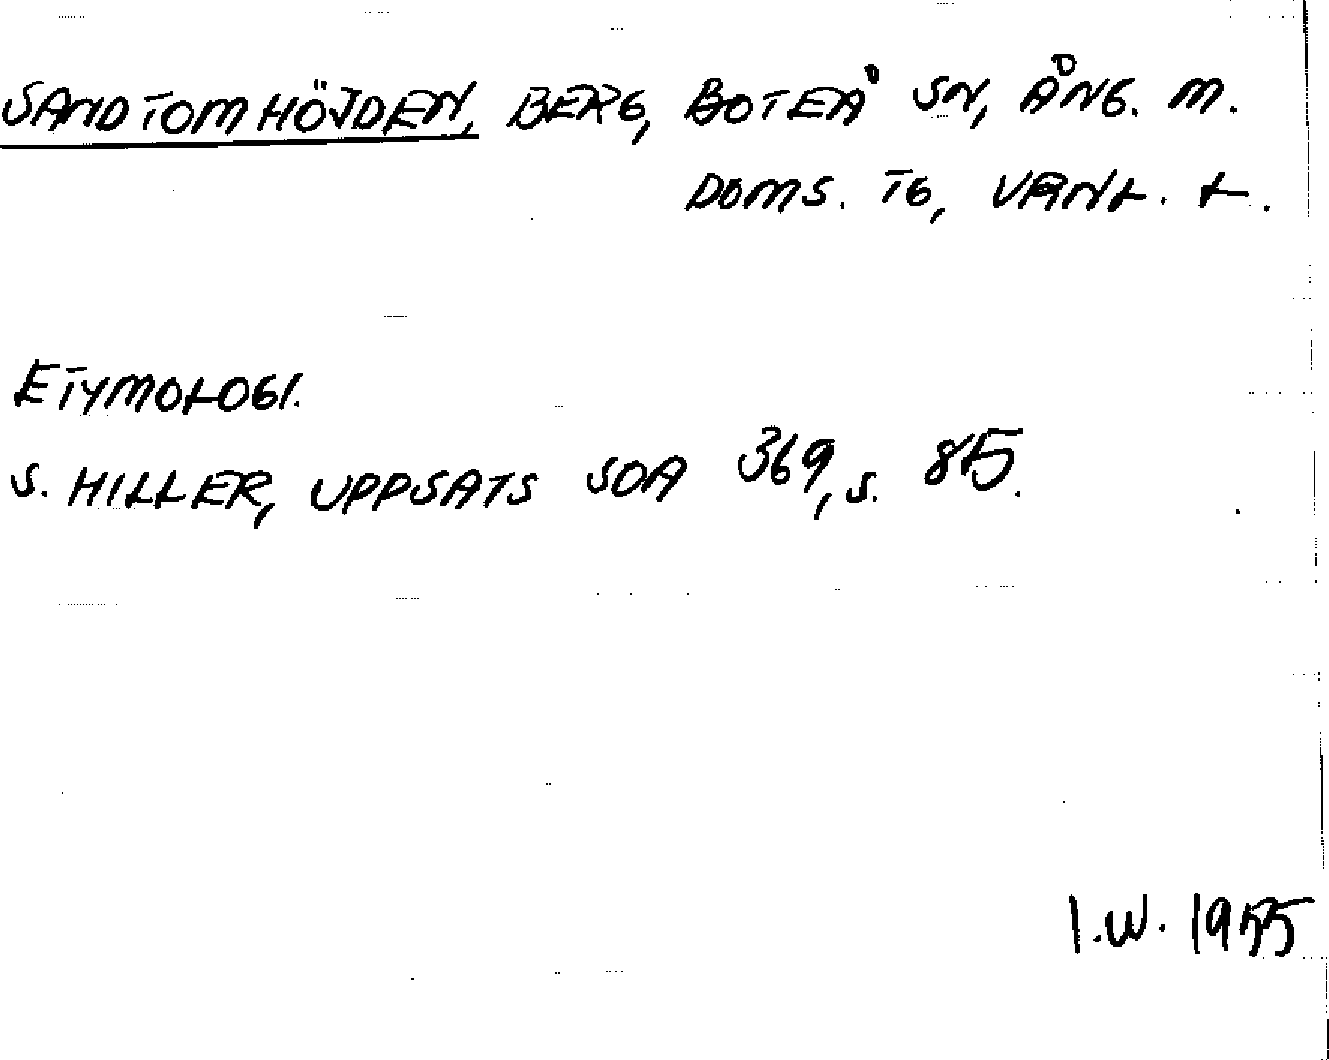 SANDTOMHÖJDEN, BERG, BOTEÅ SN, ÅNG. M.
DOMS. TG, VÄNL. L.
ETYMOLOGI.
S. HILLER, UPPSATS SOA 369, S. 85.
I.W. 1955